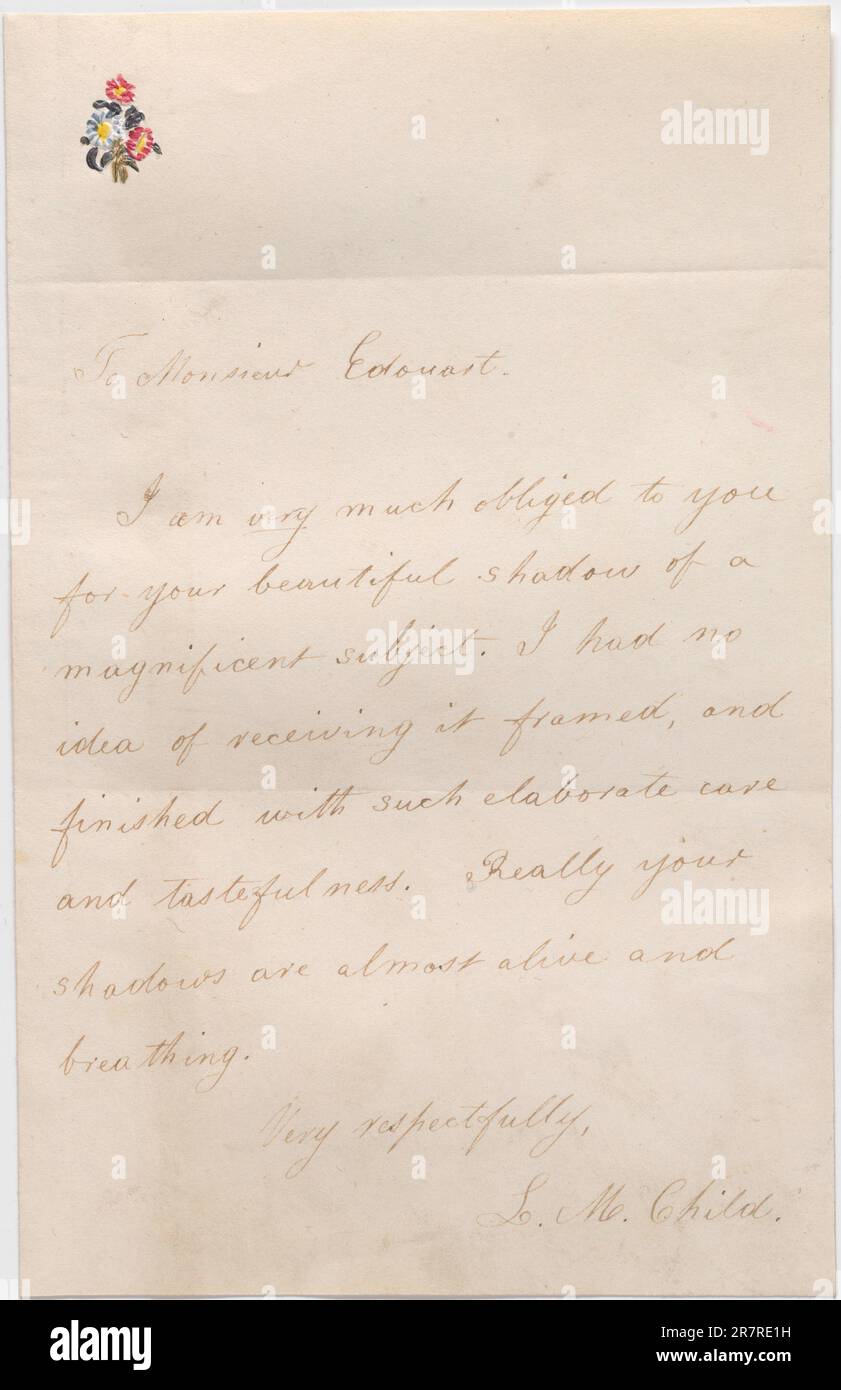 To Monsieur Edouart.
I am very much obliged to you
for your beautiful shadow of a
magnificent subject. I had no
idea of receiving it framed, and
finished with such elaborate care
and tastefulness. Really your
shadows are almost alive and
breathing.
Very respectfully,
L. M. Child.
alamy
alamy
alamy
a
a
a
a
a
a
a
a
a
a
a
a
a
a
alamy
Image ID: 2R7RE1H
www.alamy.com